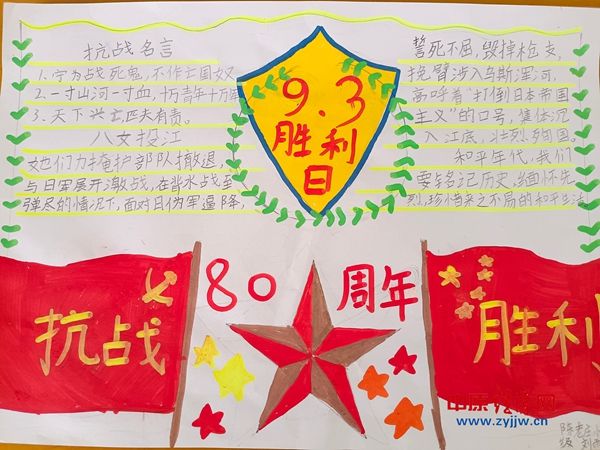 抗战名言
1.宁为战死鬼,不作亡国奴
2.一寸山河一寸血,十万青年十万军
3.天下兴亡,匹夫有责。
八女投江
她们为掩护部队撤退,
与日军展开激战,在背水战至
弹尽的情况下,面对日伪军逼降,
誓死不屈,毁掉枪支,
挽臂涉入乌斯浑河,
高呼着“打倒日本帝国
主义”的口号,集体沉
入江底,壮烈殉国
和平年代,我们
要铭记历史,缅怀先
烈,珍惜来之不易的和平生活
9.3
胜利
日
80周年
抗战
胜利
www.zyjjw.cn